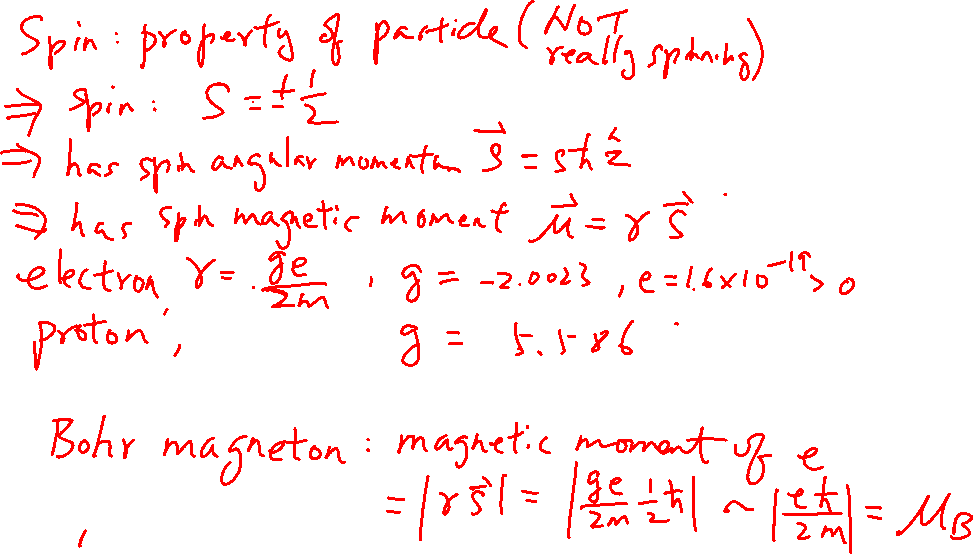 Spin : property of particle (NOT really spinning)
⇒ spin : S = ± 1/2
⇒ has spin angular momentum S⃗ = sℏ ẑ
⇒ has spin magnetic moment μ⃗ = γ S⃗
electron, γ = ge/2m , g = -2.0023 , e = 1.6×10⁻¹⁹ > 0
proton , g = 5.586
Bohr magneton : magnetic moment of e
= |γ S⃗| = |ge/2m 1/2 ℏ| ~ |eℏ/2m| = μ_B